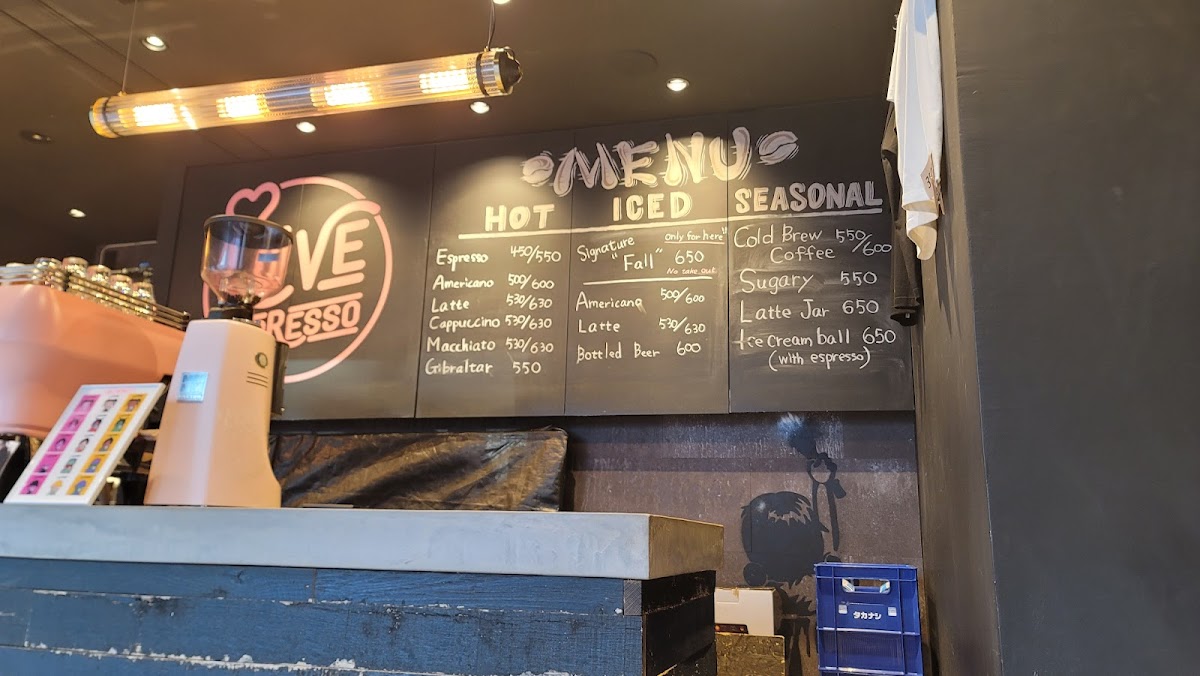 MENU
HOT
Espresso 450/550
Americano 500/600
Latte 530/630
Cappuccino 530/630
Macchiato 530/630
Gibraltar 550
ICED
Signature only for here
"Fall" 650
Americano 500/600
Latte 530/630
Bottled Beer 600
SEASONAL
Cold Brew 550/600
Coffee
Sugary 550
Latte Jar 650
Ice cream ball 650
(with espresso)
タカナシ